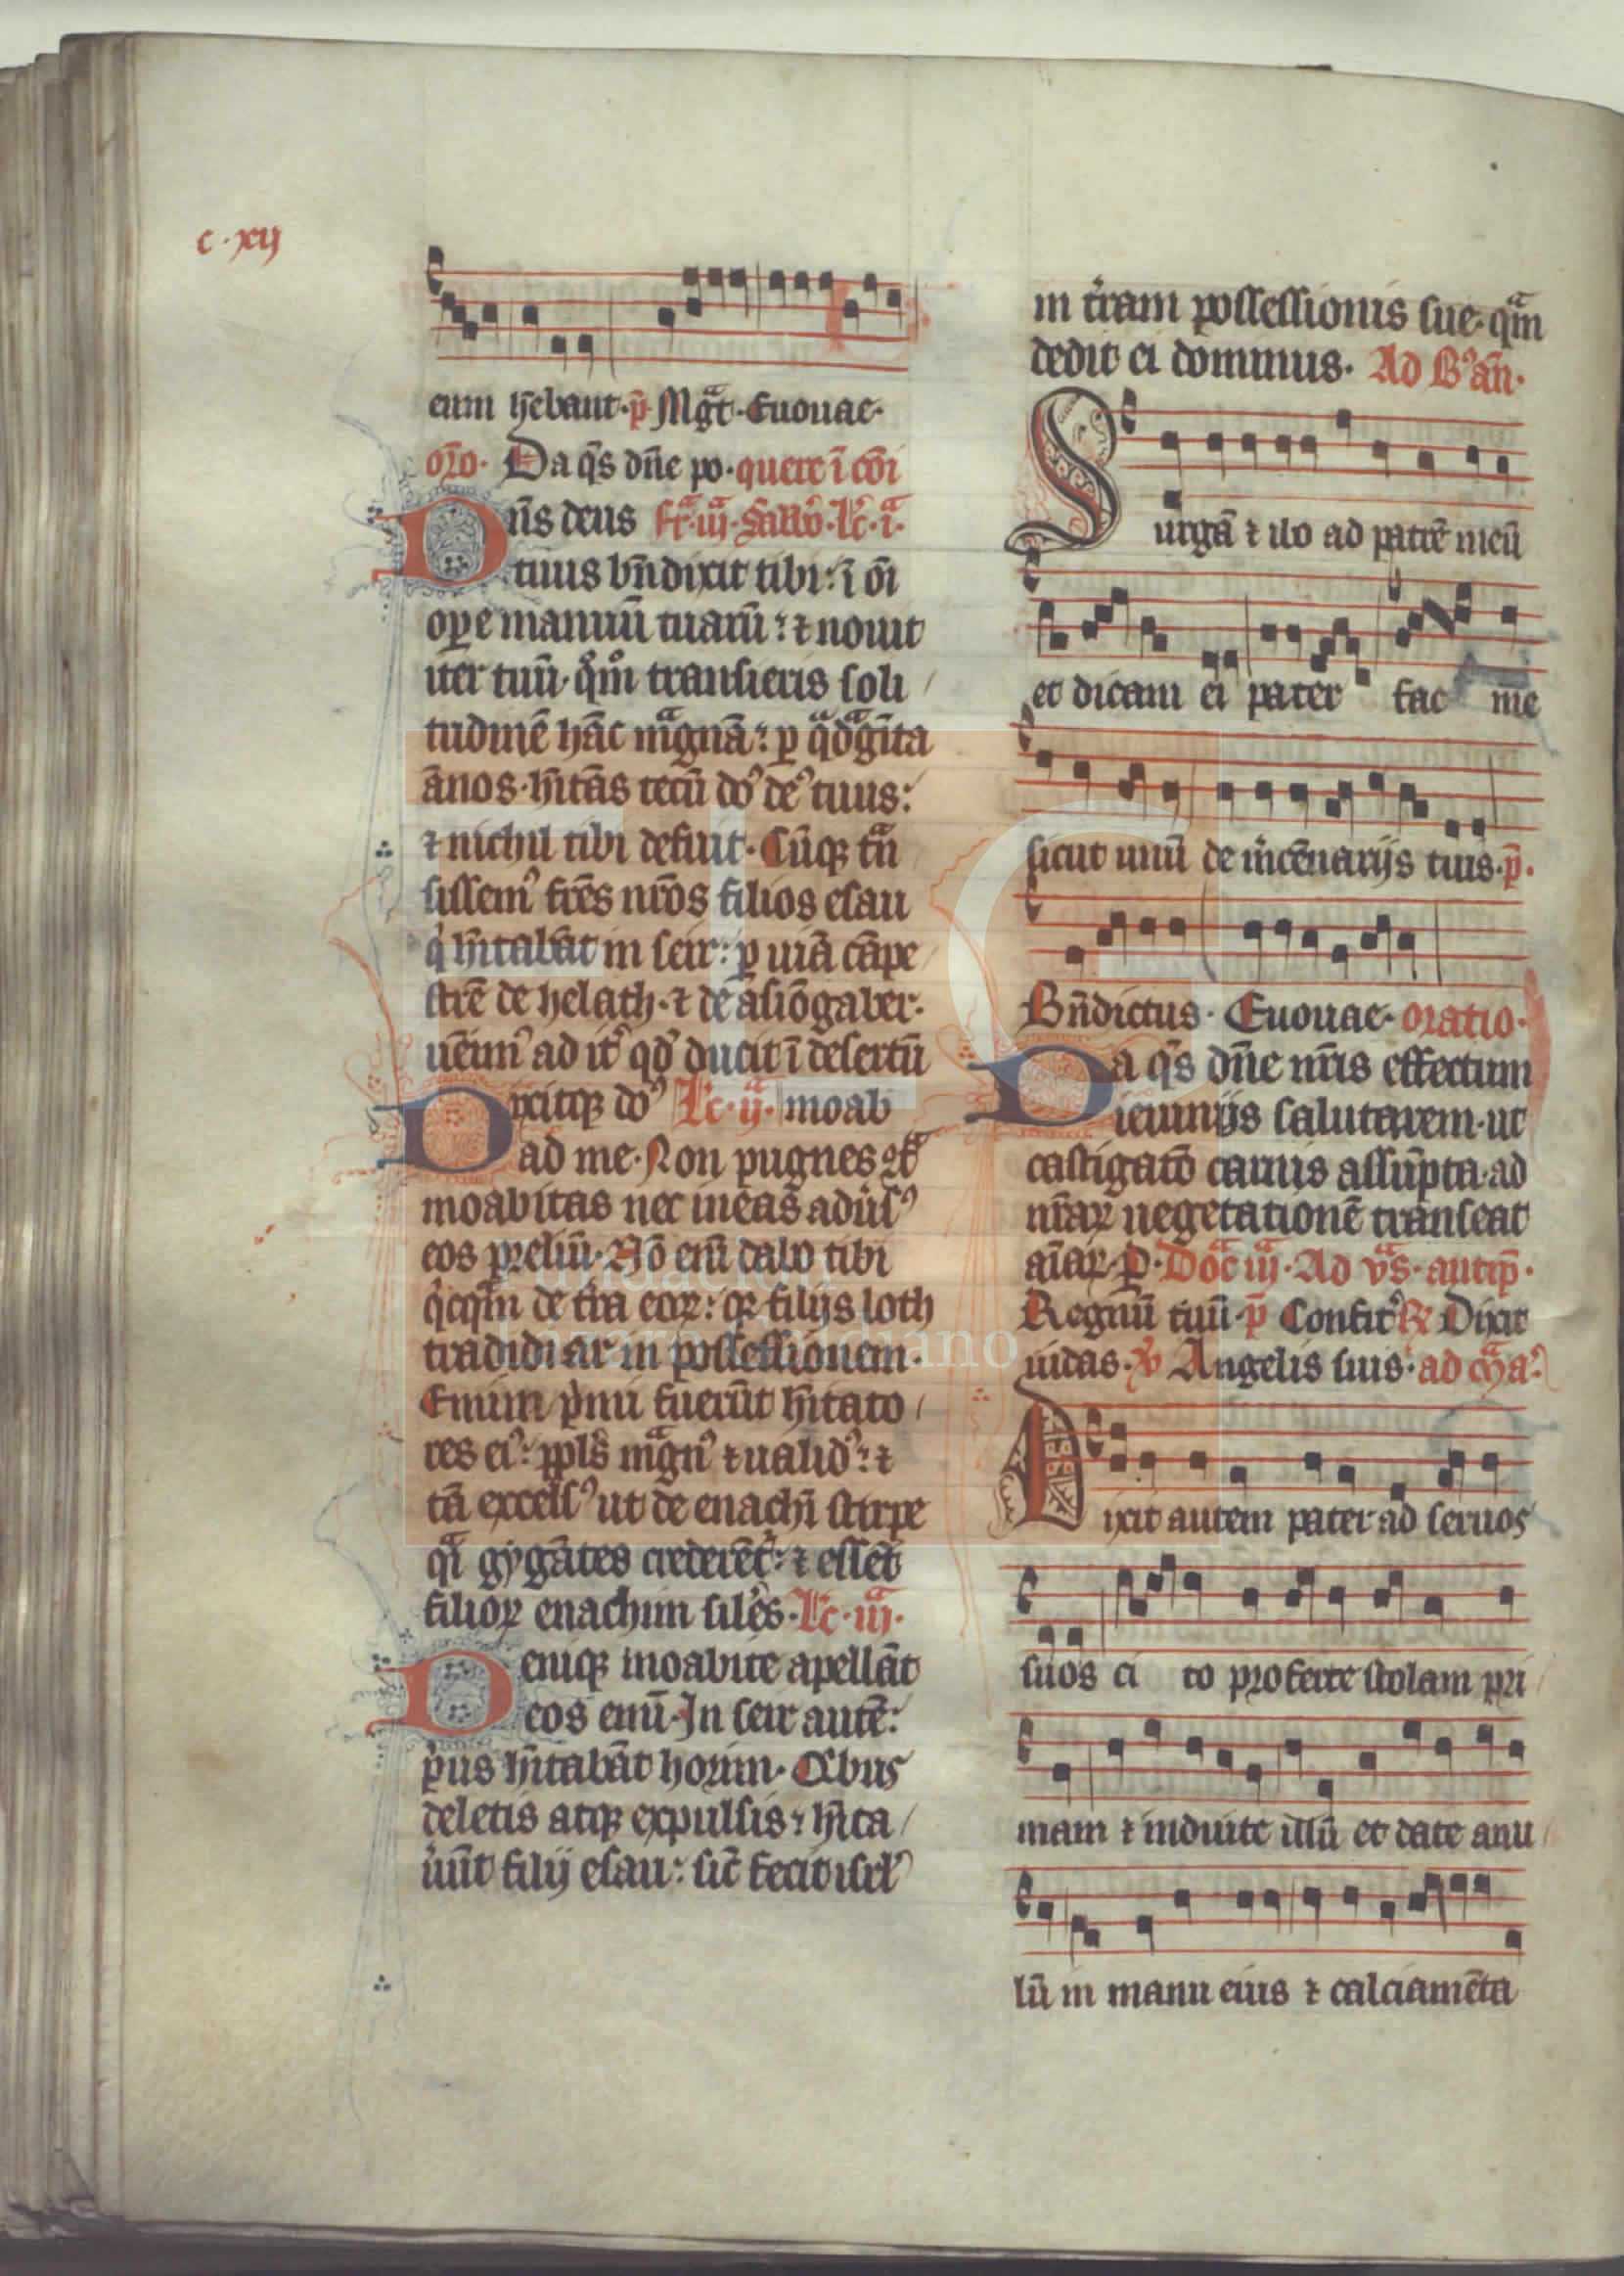 c · xij
eum hēbant · p̄ · Mg̃t · Euouae ·
oro͂ · Da q̄s dn̄e po · quere ī cōi
Dn̄s deus fr̄ · iiij · Sabb̄o · lc̄ · i ·
tuus bn̄dixit tibi : ī ōi
ope manuū tuarū : ⁊ nouit
iter tuū · qͦmͦ transieris soli /
tudinē hāc mᵃgnā : p̱ qᵃdᵃgīta
ānos · hītās tecū do᷒ de᷒ tuus :
⁊ nichil tibi defuit · Cūqꝫ tn̄
sissem᷒ frēs nrōs filios esau
qͥ hītabāt in seir : p̱ uiā cāpe /
strē de helath · ⁊ de asiōgaber ·
uēim᷒ ad it᷒ qd᷒ ducit ī desertū
Dixitqꝫ do᷒ Lc̄ · ij · moab
ad me · Non pugnes ꝯᵃ
moabitas nec ineas adūs᷒
eos preliū · Nō enī dabo tibi
qͥcqᵃm de tr̄a eoꝝ : qꝛ filijs loth
tradidi ar in possessionem ·
Emim pͥmi fuerūt hītato /
res ei᷒ : ppls̄ mᵃgn᷒ ⁊ ualid᷒ : ⁊
tā excels᷒ ut de enachī stirpe
qᵃi gygātes crederēt᷒ : ⁊ essēt
filioꝝ enachim silēs · Lc̄ · iij ·
Deniqꝫ moabite apellāt
eos emī · In seir autē :
pͥus hītabāt horim · Qͥbus
deletis atqꝫ expulsis : hīta /
u̇ūt filij esau : sic̄ fecit isrl᷒
in tr̄am possessionis sue · qᵃm
dedit ei dominus · Ad B᷒ ān ·
Surgā ⁊ ibo ad patrē meū
et dicam ei pater fac me
sicut unū de m̄cēnarijs tuis · p̄ ·
Bn̄dictus · Euouae · oratio ·
Da q̄s dn̄e nr̄is effectum
ieiunijs salutarem · ut
castigatō carnis assūpta · ad
nr̄aꝝ uegetationē transeat
aīaꝝ · P̱ · Doc̄ iij · Ad vᵃs · antip̄ ·
Regnū tuū · p̄ Confit᷒ ℞ Dixit
iudas · ℣ Angelis suis · ad mᵃa᷒
Dixit autem pater ad seruos
suos ci to proferte stolam pri /
mam ⁊ induite illū et date anu /
lū in manu eius ⁊ calciamēta